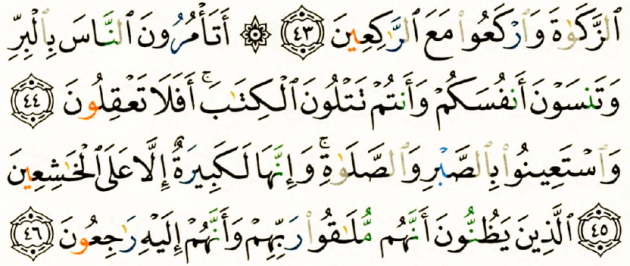 ٱلزَّكَوٰةَ وَٱرْكَعُوا۟ مَعَ ٱلرَّٰكِعِينَ ٤٣ ۞ أَتَأْمُرُونَ ٱلنَّاسَ بِٱلْبِرِّ
وَتَنسَوْنَ أَنفُسَكُمْ وَأَنتُمْ تَتْلُونَ ٱلْكِتَٰبَ ۚ أَفَلَا تَعْقِلُونَ ٤٤
وَٱسْتَعِينُوا۟ بِٱلصَّبْرِ وَٱلصَّلَوٰةِ ۚ وَإِنَّهَا لَكَبِيرَةٌ إِلَّا عَلَى ٱلْخَٰشِعِينَ
٤٥ ٱلَّذِينَ يَظُنُّونَ أَنَّهُم مُّلَٰقُوا۟ رَبِّهِمْ وَأَنَّهُمْ إِلَيْهِ رَٰجِعُونَ ٤٦